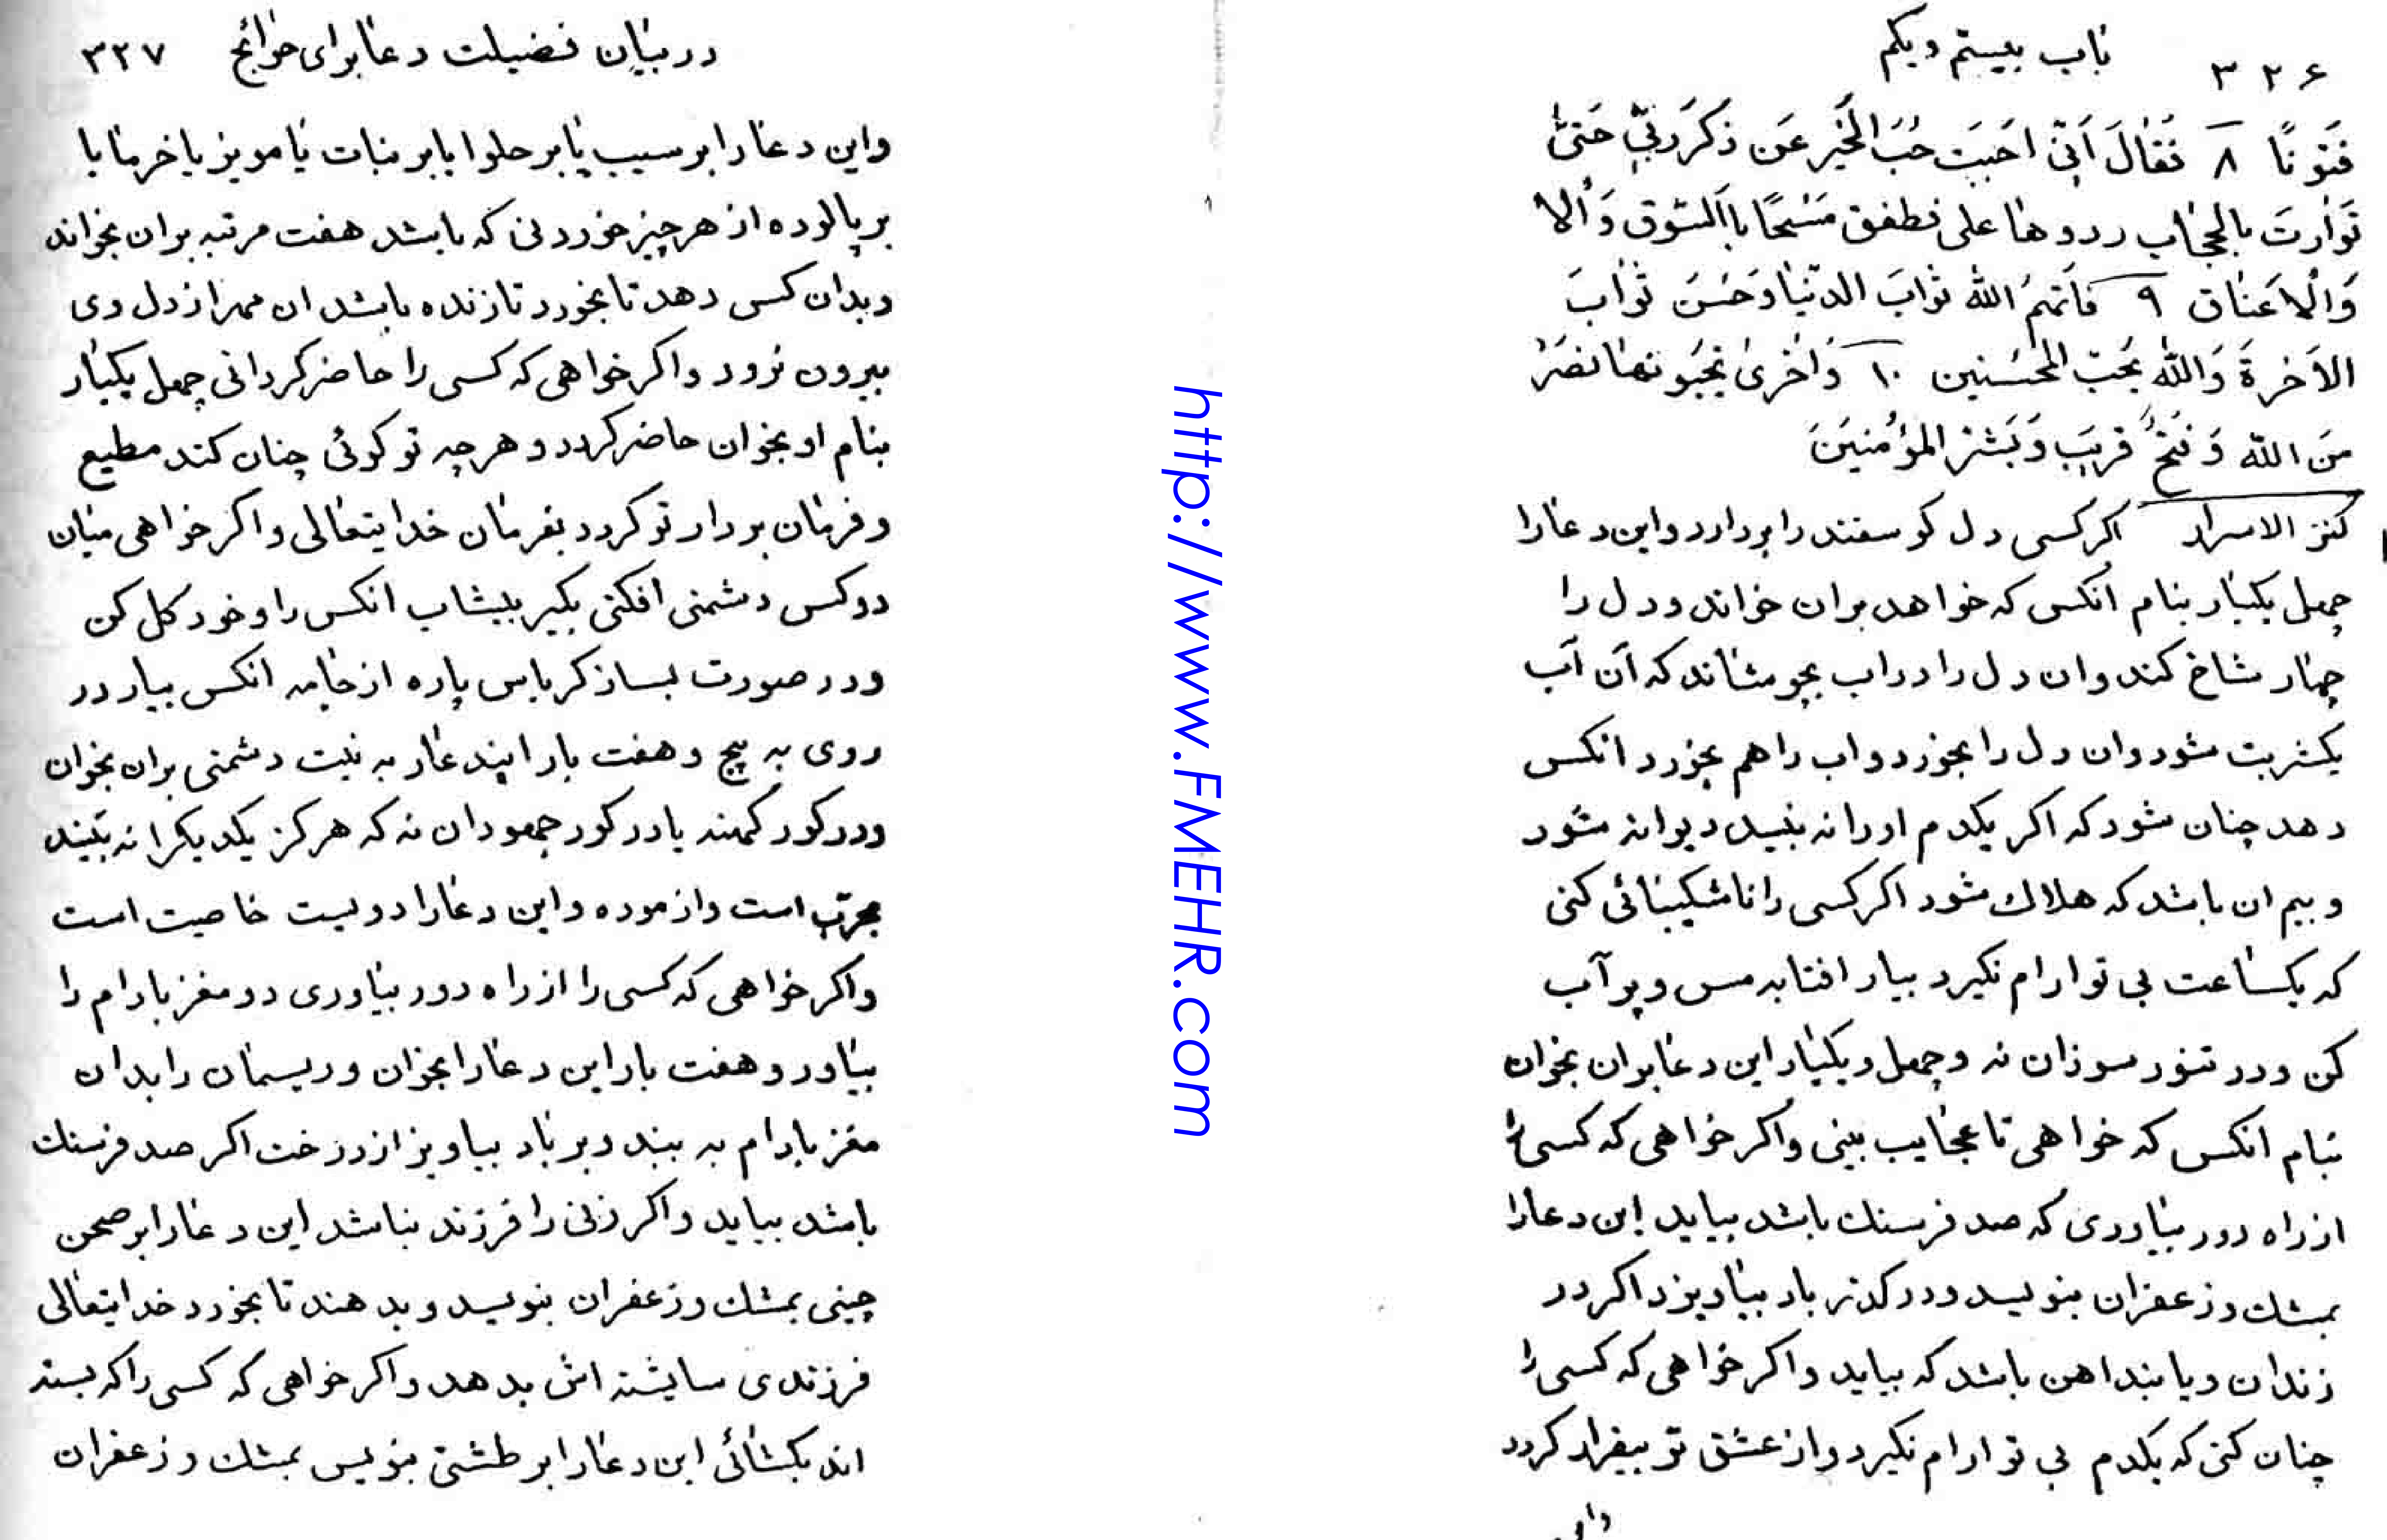 ۳۲۶ باب بیستم ویکم
فتونًا ۸ فقالَ اَنّی احببَت حُبَ الخَیر عَن ذکر ربّی حَتیٰ
تَوارتَ بالحجاب ردوها علی فطفق مَسْحًا باالسّوق وَ الا
وَالاعناق ۹ فاَتهمُ الله ثوابَ الدنیا وَحُسنَ ثوابَ
الاخرةَ وَالله یحَبّ المحسَنین ۱۰ وَاُخریٰ تحبَونها نصَرُ
منَ الله وَ فتحُ قریبَ وَبَشر المؤمنیَنَ
کنز الاسرار اکر کسی دل کوسفند را بردارد واین دعارا
چهل یکبار بنام انکس که خواهد بران خواند ودل را
چهار شاخ کند وان دل را دراب بجوشاند که آن آب
یکشربت شود وان دل را بخورد واب را هم بخورد انکس
دهد چنان شود که اکر یکدم اورا نه بیند دیوانه شود
وبیم ان باشد که هلاك شود اکر کسی را ناشکیبائی کنی
که یکساعت بی تو ارام نکیرد بیار افتابه مس وپر آب
کن ودر تنور سوزان نه وچهل ویکبار این دعا بران بخوان
بنام انکس که خواهی تا عجایب بینی واکر خواهی که کسی را
از راه دور بیاوری که صد فرسنك باشد بیاید این دعارا
بمشك وزعفران بنویسد ودر کذر باد بیاویزد اکر در
زندان ویا بنداهن باشد که بیاید واکر خواهی که کسی را
چنان کنی که یکدم بی تو ارام نکیرد واز عشق تو بیقرار کردد
در بیان فضیلت دعا برای حوائج ۳۲۷
واین دعارا بر سیب یا بر حلوا یا بر نبات یا مویز یا خرما یا
بر پالوده از هر چیز خوردنی که باشد هفت مرتبه بران بخواند
وبدان کس دهد تا بخورد تا زنده باشد ان مهر از دل وی
بیرون نرود واکر خواهی که کسی را حاضر کردانی چهل یکبار
بنام او بخوان حاضر کردد و هر چه تو کوئی چنان کند مطیع
وفرمان بردار تو کردد بفرمان خدایتعالی واکر خواهی میان
دوکس دشمنی افکنی بکیر بیشاب انکس را وخود کل کن
ودر صورت بساز کرباس پاره از جامه انکس بیار در
روی به پیچ وهفت بار ایندعار به نیت دشمنی بران بخوان
ودر کور کهنه یا در کور جهودان نه که هرکز یکدیکرا نه بینند
مجرّب است وازموده واین دعارا دویست خاصیت است
واکر خواهی که کسی را از راه دور بیاوری دومغز بادام را
بیاور وهفت بار این دعارا بخوان وریسمان را بدان
مغز بادام به بند وبر باد بیاویز از درخت اکر صد فرسنك
باشد بیاید واکر زنی را فرزند نباشد این دعارا بر صحن
چینی بمشك وزعفران بنویسد وبدهند تا بخورد خدایتعالی
فرزندی سایشته اش بدهد واکر خواهی که کسی را که بسته
اند بکشائی این دعارا بر طشتی بنویس بمشك وزعفران
http://www.FMEHR.com